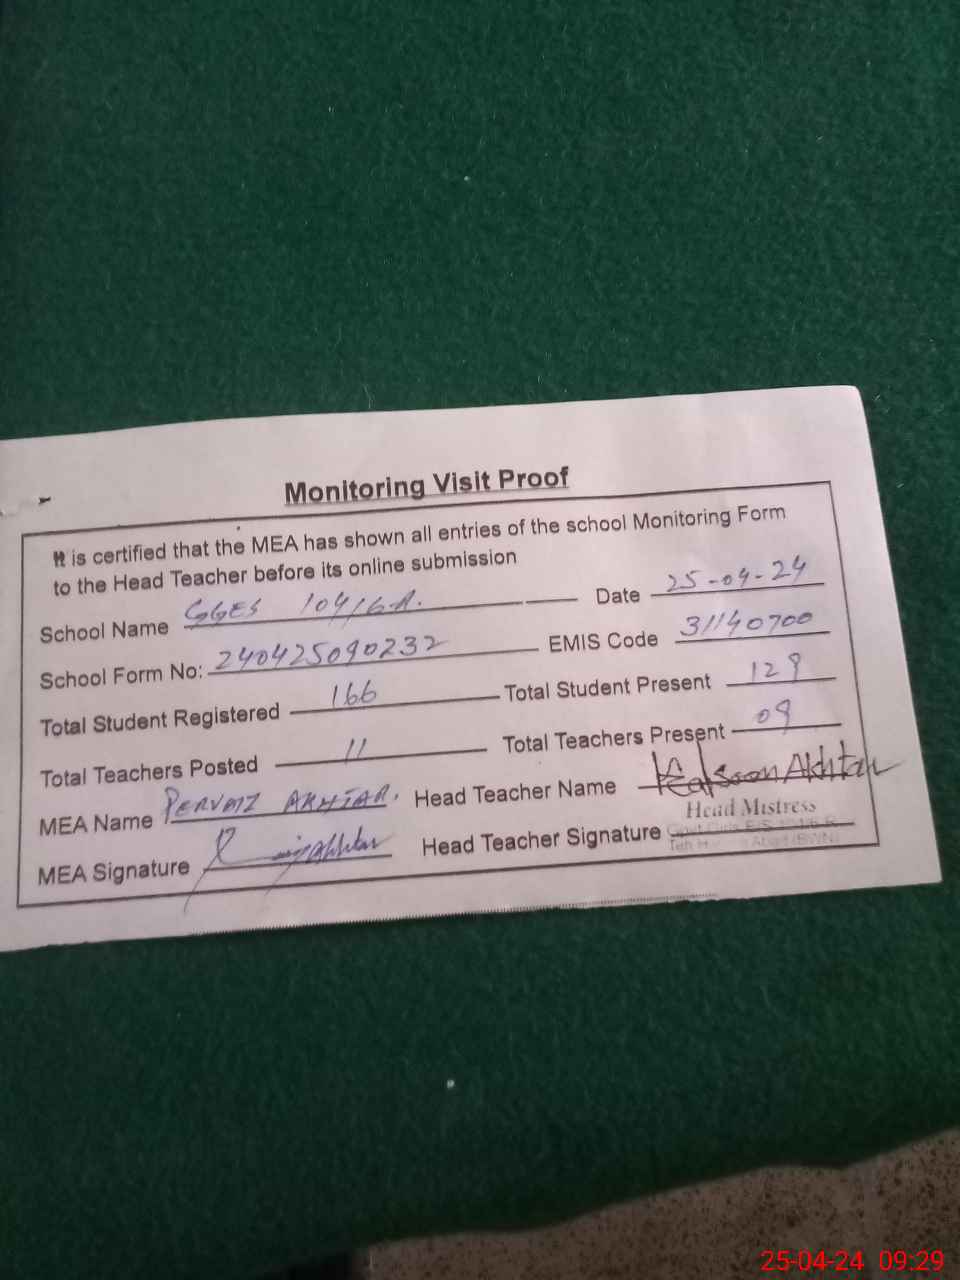 Monitoring Visit Proof
It is certified that the MEA has shown all entries of the school Monitoring Form
to the Head Teacher before its online submission
School Name GGES 104/6.R. Date 25-04-24
School Form No: 240425090232 EMIS Code 31140700
Total Student Registered 166 Total Student Present 129
Total Teachers Posted 11 Total Teachers Present 09
MEA Name PERVAIZ AKHTAR. Head Teacher Name Kalsoom Akhtar
Head Mistress
MEA Signature Akhtar Head Teacher Signature
25-04-24 09:29